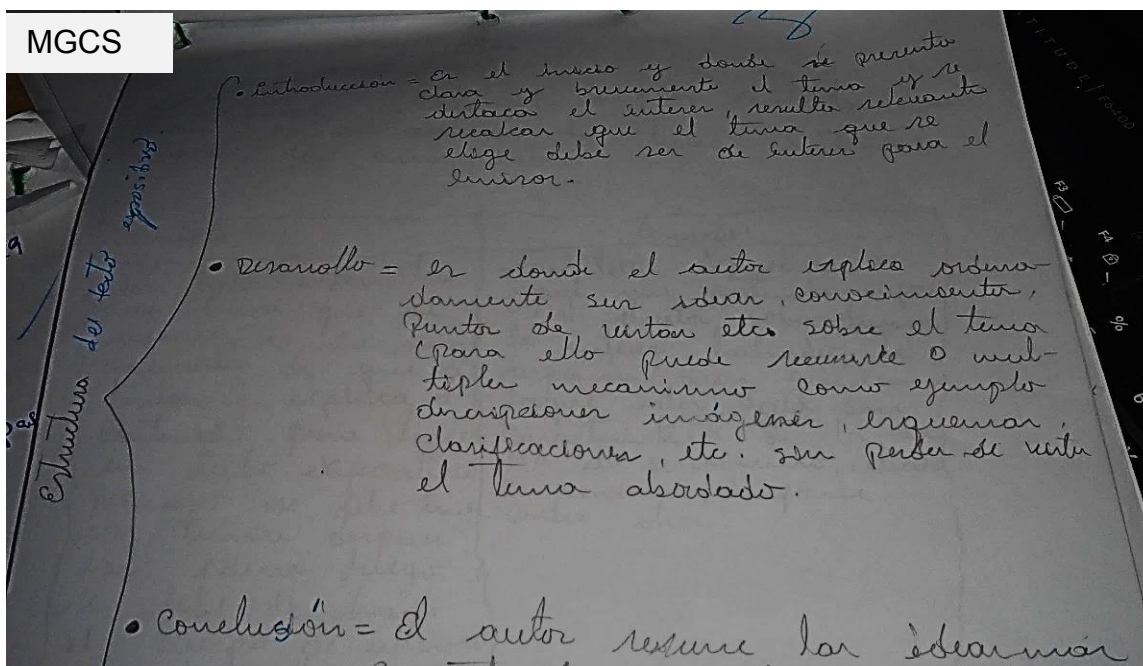 MGCS
Estructura del texto expositivo
• introducción = Es el inicio y donde se presenta
clara y brevemente el tema y se
destaca el interes, resulta relevante
recalcar que el tema que se
elege debe ser de interes para el
emisor.
• Desarrollo = es donde el autor explica ordena-
damente sus ideas, conocimientos,
puntos de vistas etc. sobre el tema
(para ello puede recurrirse o mul-
tiples mecanismo como ejemplo
descripciones imágenes, esquemas,
clarificaciones, etc. sin perder de vista
el tema abordado.
• Conclusión = El autor resume las ideas más
F3
F4
%